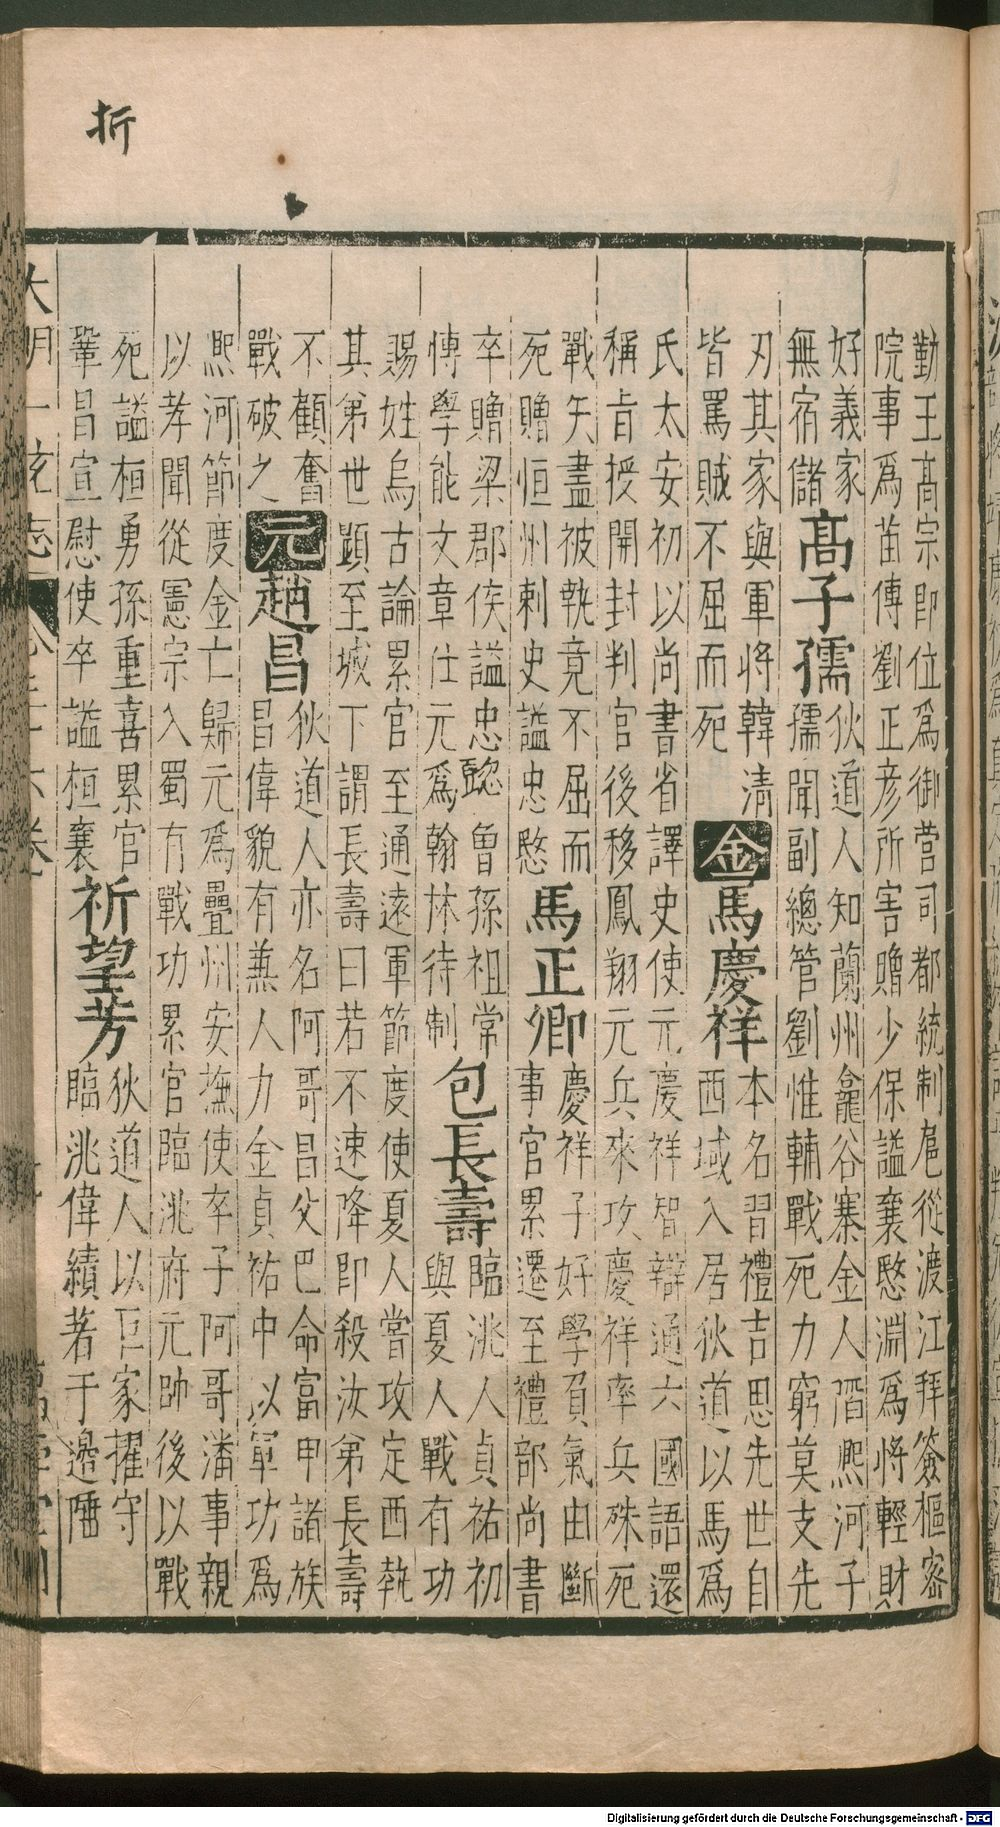 折
勤王高宗即位為御營司都統制扈從渡江拜簽樞密
院事為苗傅劉正彦所害贈少保謚襄愍淵為將輕財
好義家
無宿儲
高子孺
狄道人知蘭州龕谷寨金人陷熈河子
孺聞副總管劉惟輔戰死力窮莫支先
刃其家與軍將韓清
皆罵賊不屈而死
金
馬慶祥
本名習禮吉思先世自
西域入居狄道以馬為
氏太安初以尚書省譯史使元慶祥智辯通六國語還
稱旨授開封判官後移鳳翔元兵來攻慶祥率兵殊死
戰矢盡被執竟不屈而
死贈恒州刺史謚忠愍
馬正卿
慶祥子好學負氣由斷
事官累遷至禮部尚書
卒贈梁郡侯謚忠懿曾孫祖常
愽學能文章仕元為翰林待制
包長壽
臨洮人貞祐初
與夏人戰有功
賜姓烏古論累官至通遠軍節度使夏人嘗攻定西執
其弟世顕至城下謂長壽曰若不速降即殺汝弟長壽
不顧奮
戰破之
元
趙昌
狄道人亦名阿哥昌父巴命富甲諸族
昌偉貌有兼人力金貞祐中以軍功為
熈河節度金亡歸元為疊州安撫使卒子阿哥潘事親
以孝聞從憲宗入蜀有戰功累官臨洮府元帥後以戰
死謚桓勇孫重喜累官
鞏昌宣慰使卒謚桓襄
祈望芳
狄道人以巨家擢守
臨洮偉績著于邊陲
大明一統志
Digitalisierung gefördert durch die Deutsche Forschungsgemeinschaft - DFG